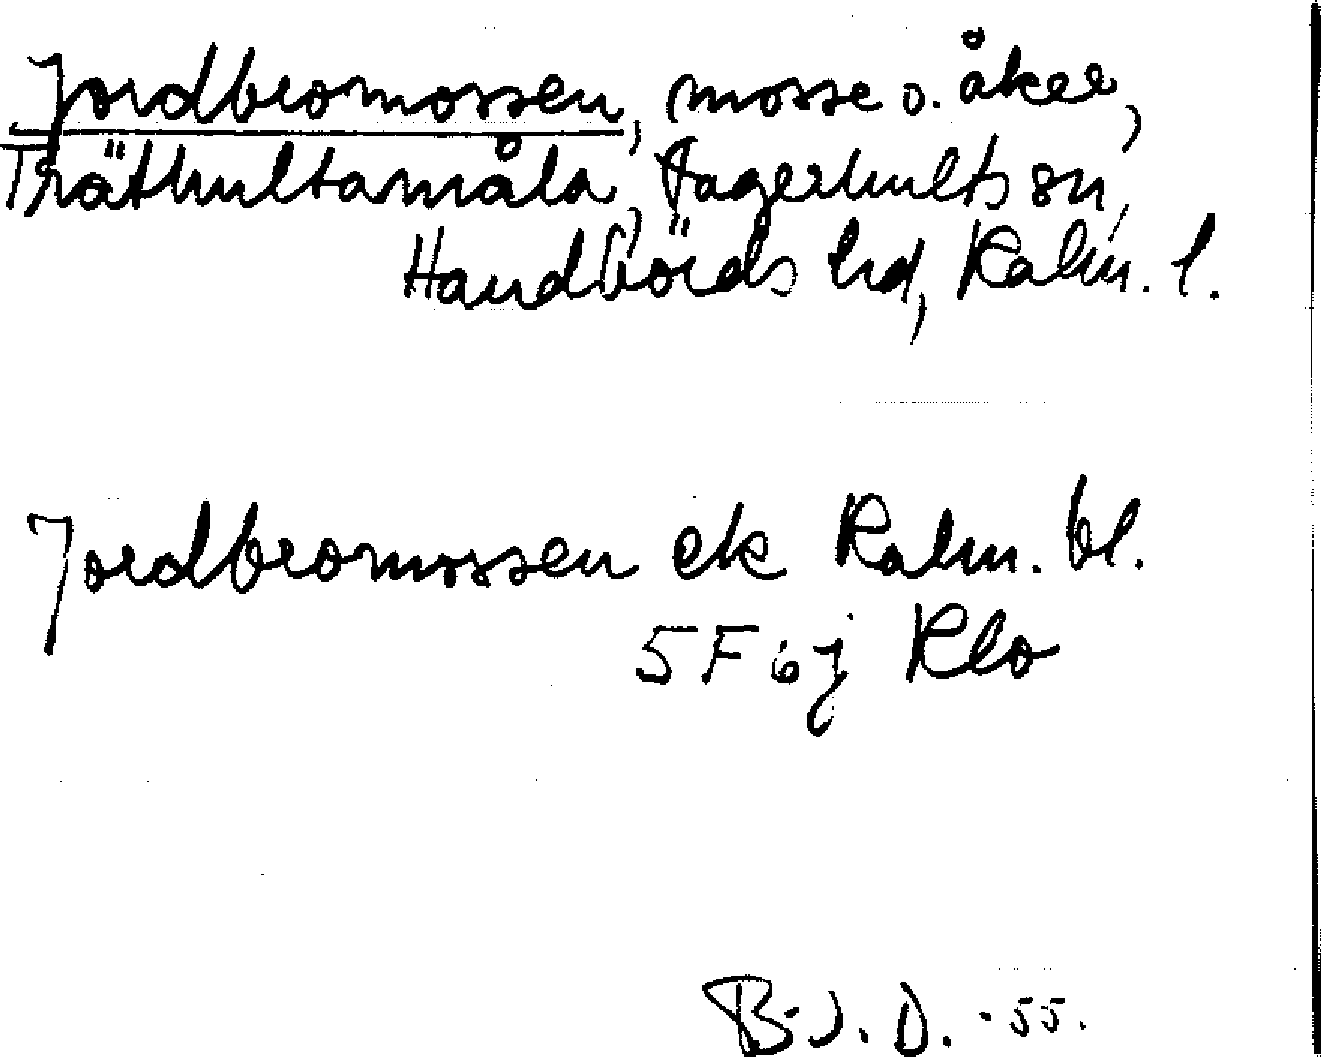 Jordbromossen, mosse o. åker,
Träthultamåla, Fagerhults sn,
Handbörds hd, Kalm. l.
Jordbromossen ek Kalm. bl.
5F 6j Klo
B-J. D. -55.